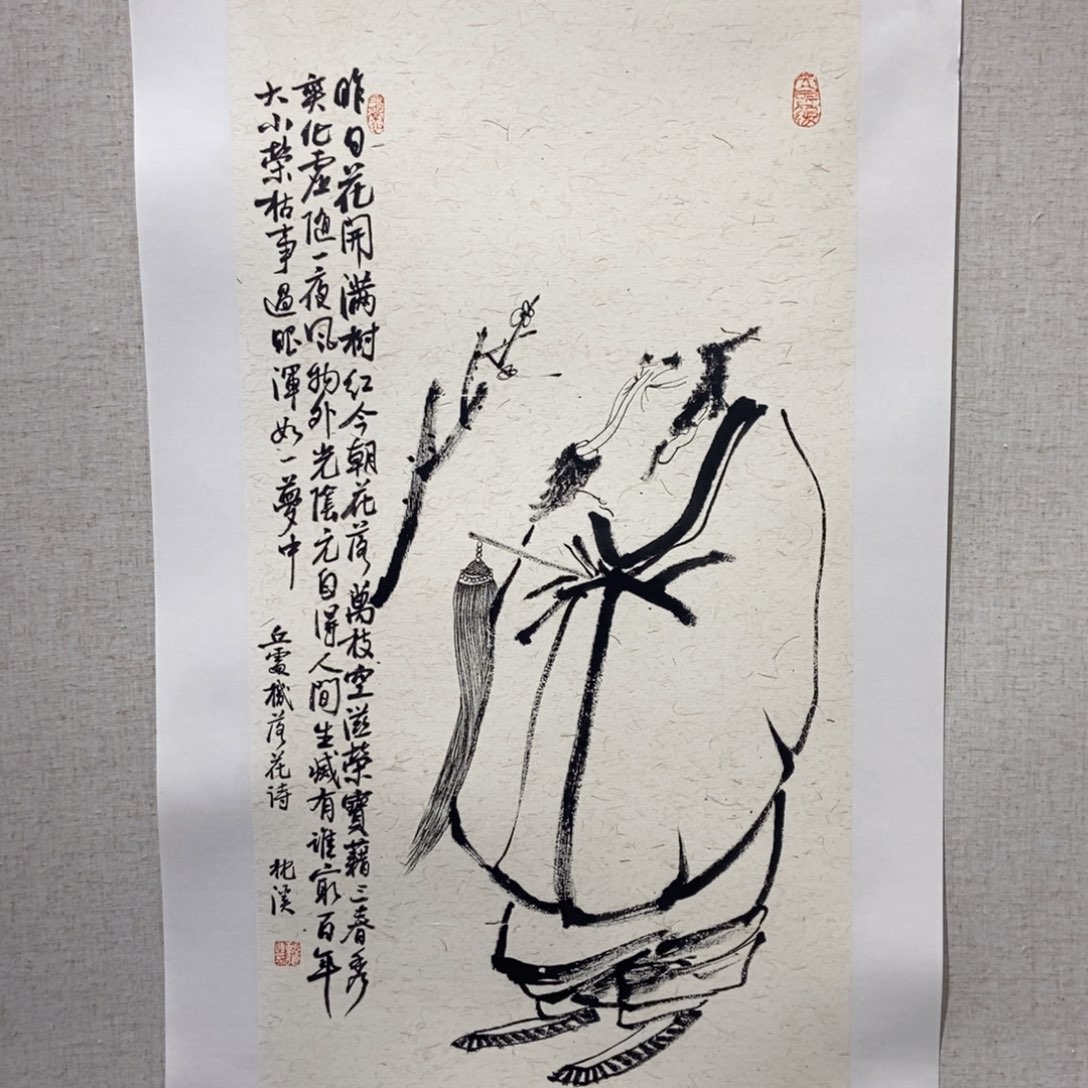 昨日花開满树红今朝花落萬枝空滋榮實藉三春秀
变化虚随一夜风物外光陰元自得人間生滅有谁窮百年
大小榮枯事過眼渾如一夢中 丘處機落花诗 枕溪